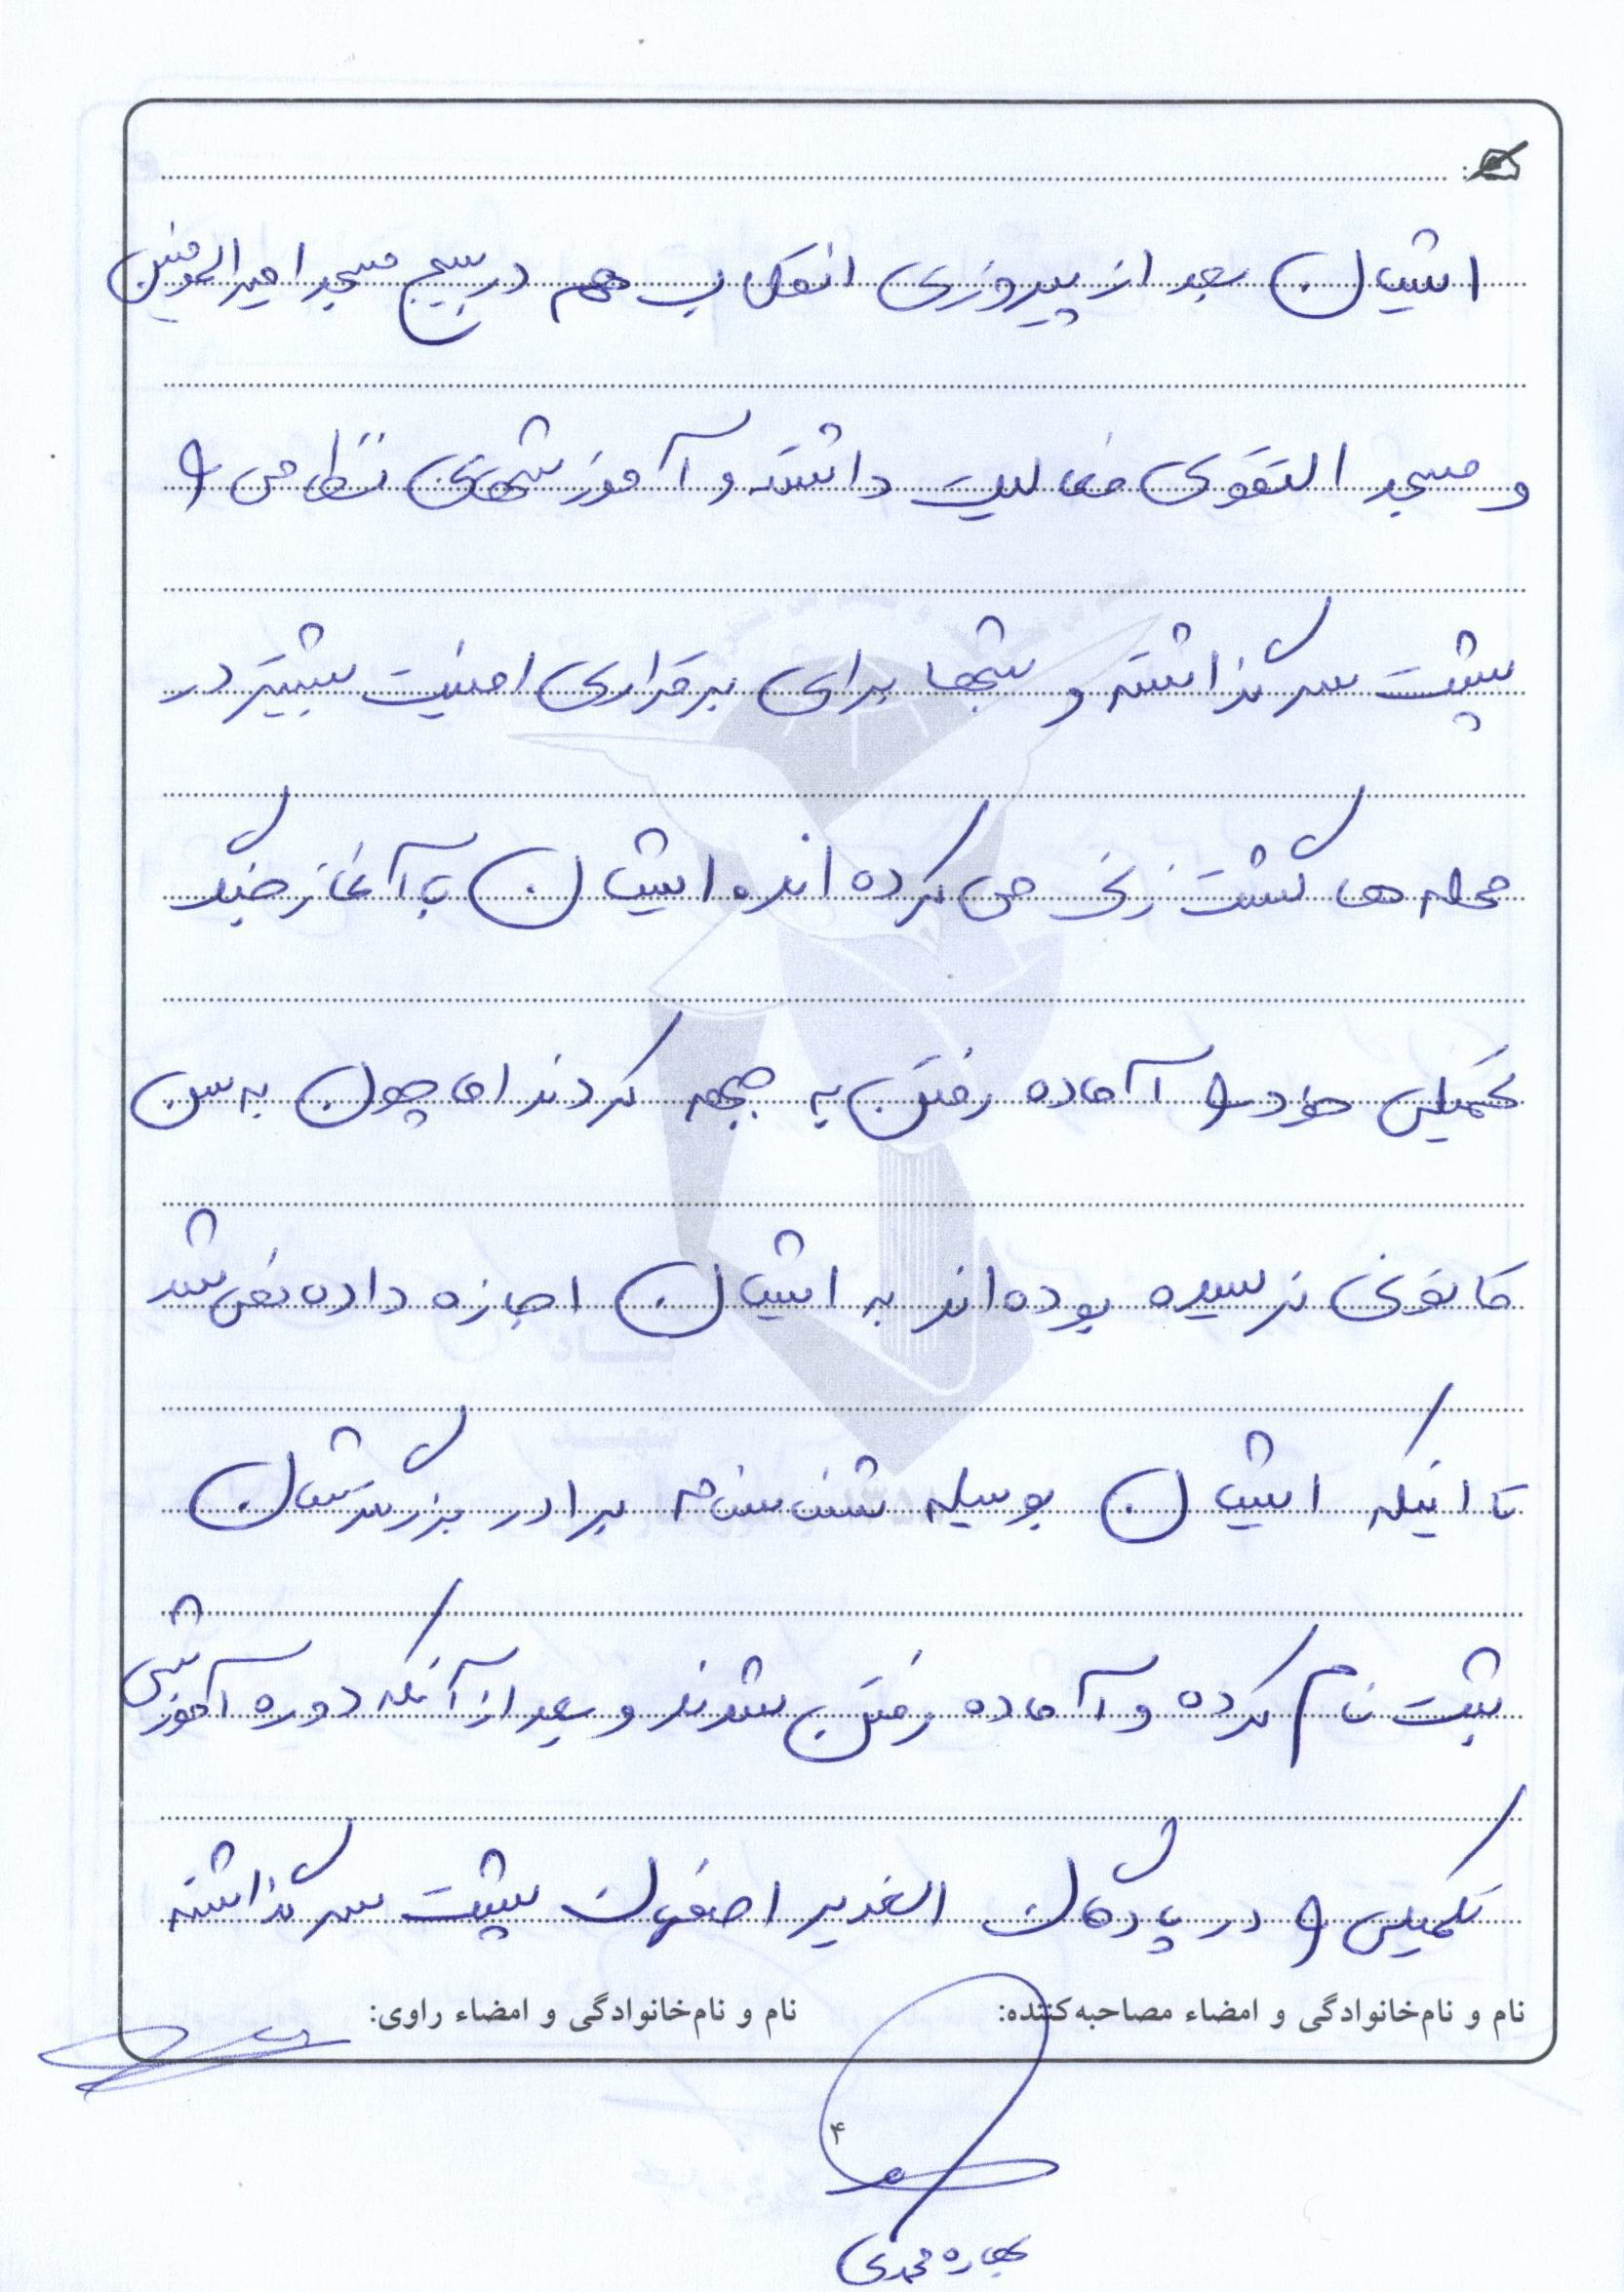 ایشان بعد از پیروزی انقلاب هم در بسیج مسجد امیرالمومنین
و مسجد التقوی فعالیت داشته و آموزشهای نظامی را
پشت سر گذاشته و شبها برای برقراری امنیت بیشتر در
محله ها گشت زنی می کرده اند. ایشان با آغاز جنگ
تحمیلی خود را آماده رفتن به جبهه کردند اما چون به سن
قانونی نرسیده بوده اند به ایشان اجازه داده نمی شد
تا اینکه ایشان بوسیله شناسنامه برادر بزرگترشان
ثبت نام کرده و آماده رفتن شدند و بعد از آنکه دوره آموزشی
تکمیلی را در پادگان الغدیر اصفهان پشت سر گذاشته
نام و نام‌خانوادگی و امضاء مصاحبه‌کننده: نام و نام‌خانوادگی و امضاء راوی:
۴
بهاره محمدی